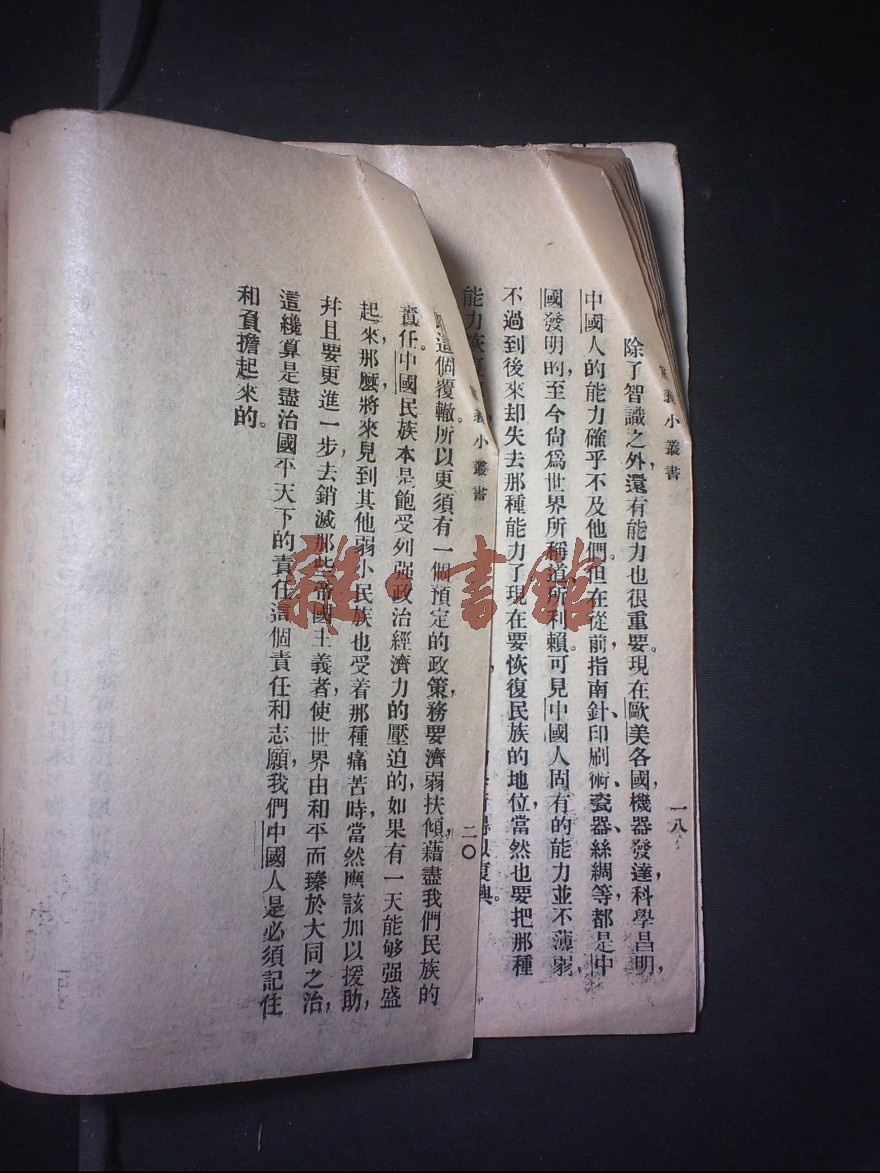 義小叢書
一八
除了智識之外，還有能力也很重要。現在歐美各國，機器發達，科學昌明，
中國人的能力確乎不及他們。但在從前，指南針、印刷術、瓷器、絲綢等，都是中
國發明的，至今尙爲世界所稱道所利賴。可見中國人固有的能力並不薄弱，
不過到後來却失去那種能力了。現在要恢復民族的地位，當然也要把那種
能力恢復
以復興。
義小叢書
二〇
這個覆轍。所以更須有一個預定的政策，務要濟弱扶傾，藉盡我們民族的
責任。中國民族本是飽受列强政治經濟力的壓迫的，如果有一天能够强盛
起來，那麽，將來見到其他弱小民族也受着那種痛苦時，當然應該加以援助，
幷且要更進一步，去銷滅那些帝國主義者，使世界由和平而臻於大同之治，
這纔算是盡治國平天下的責任。這個責任和志願，我們中國人是必須記住
和負擔起來的。
雜·書館